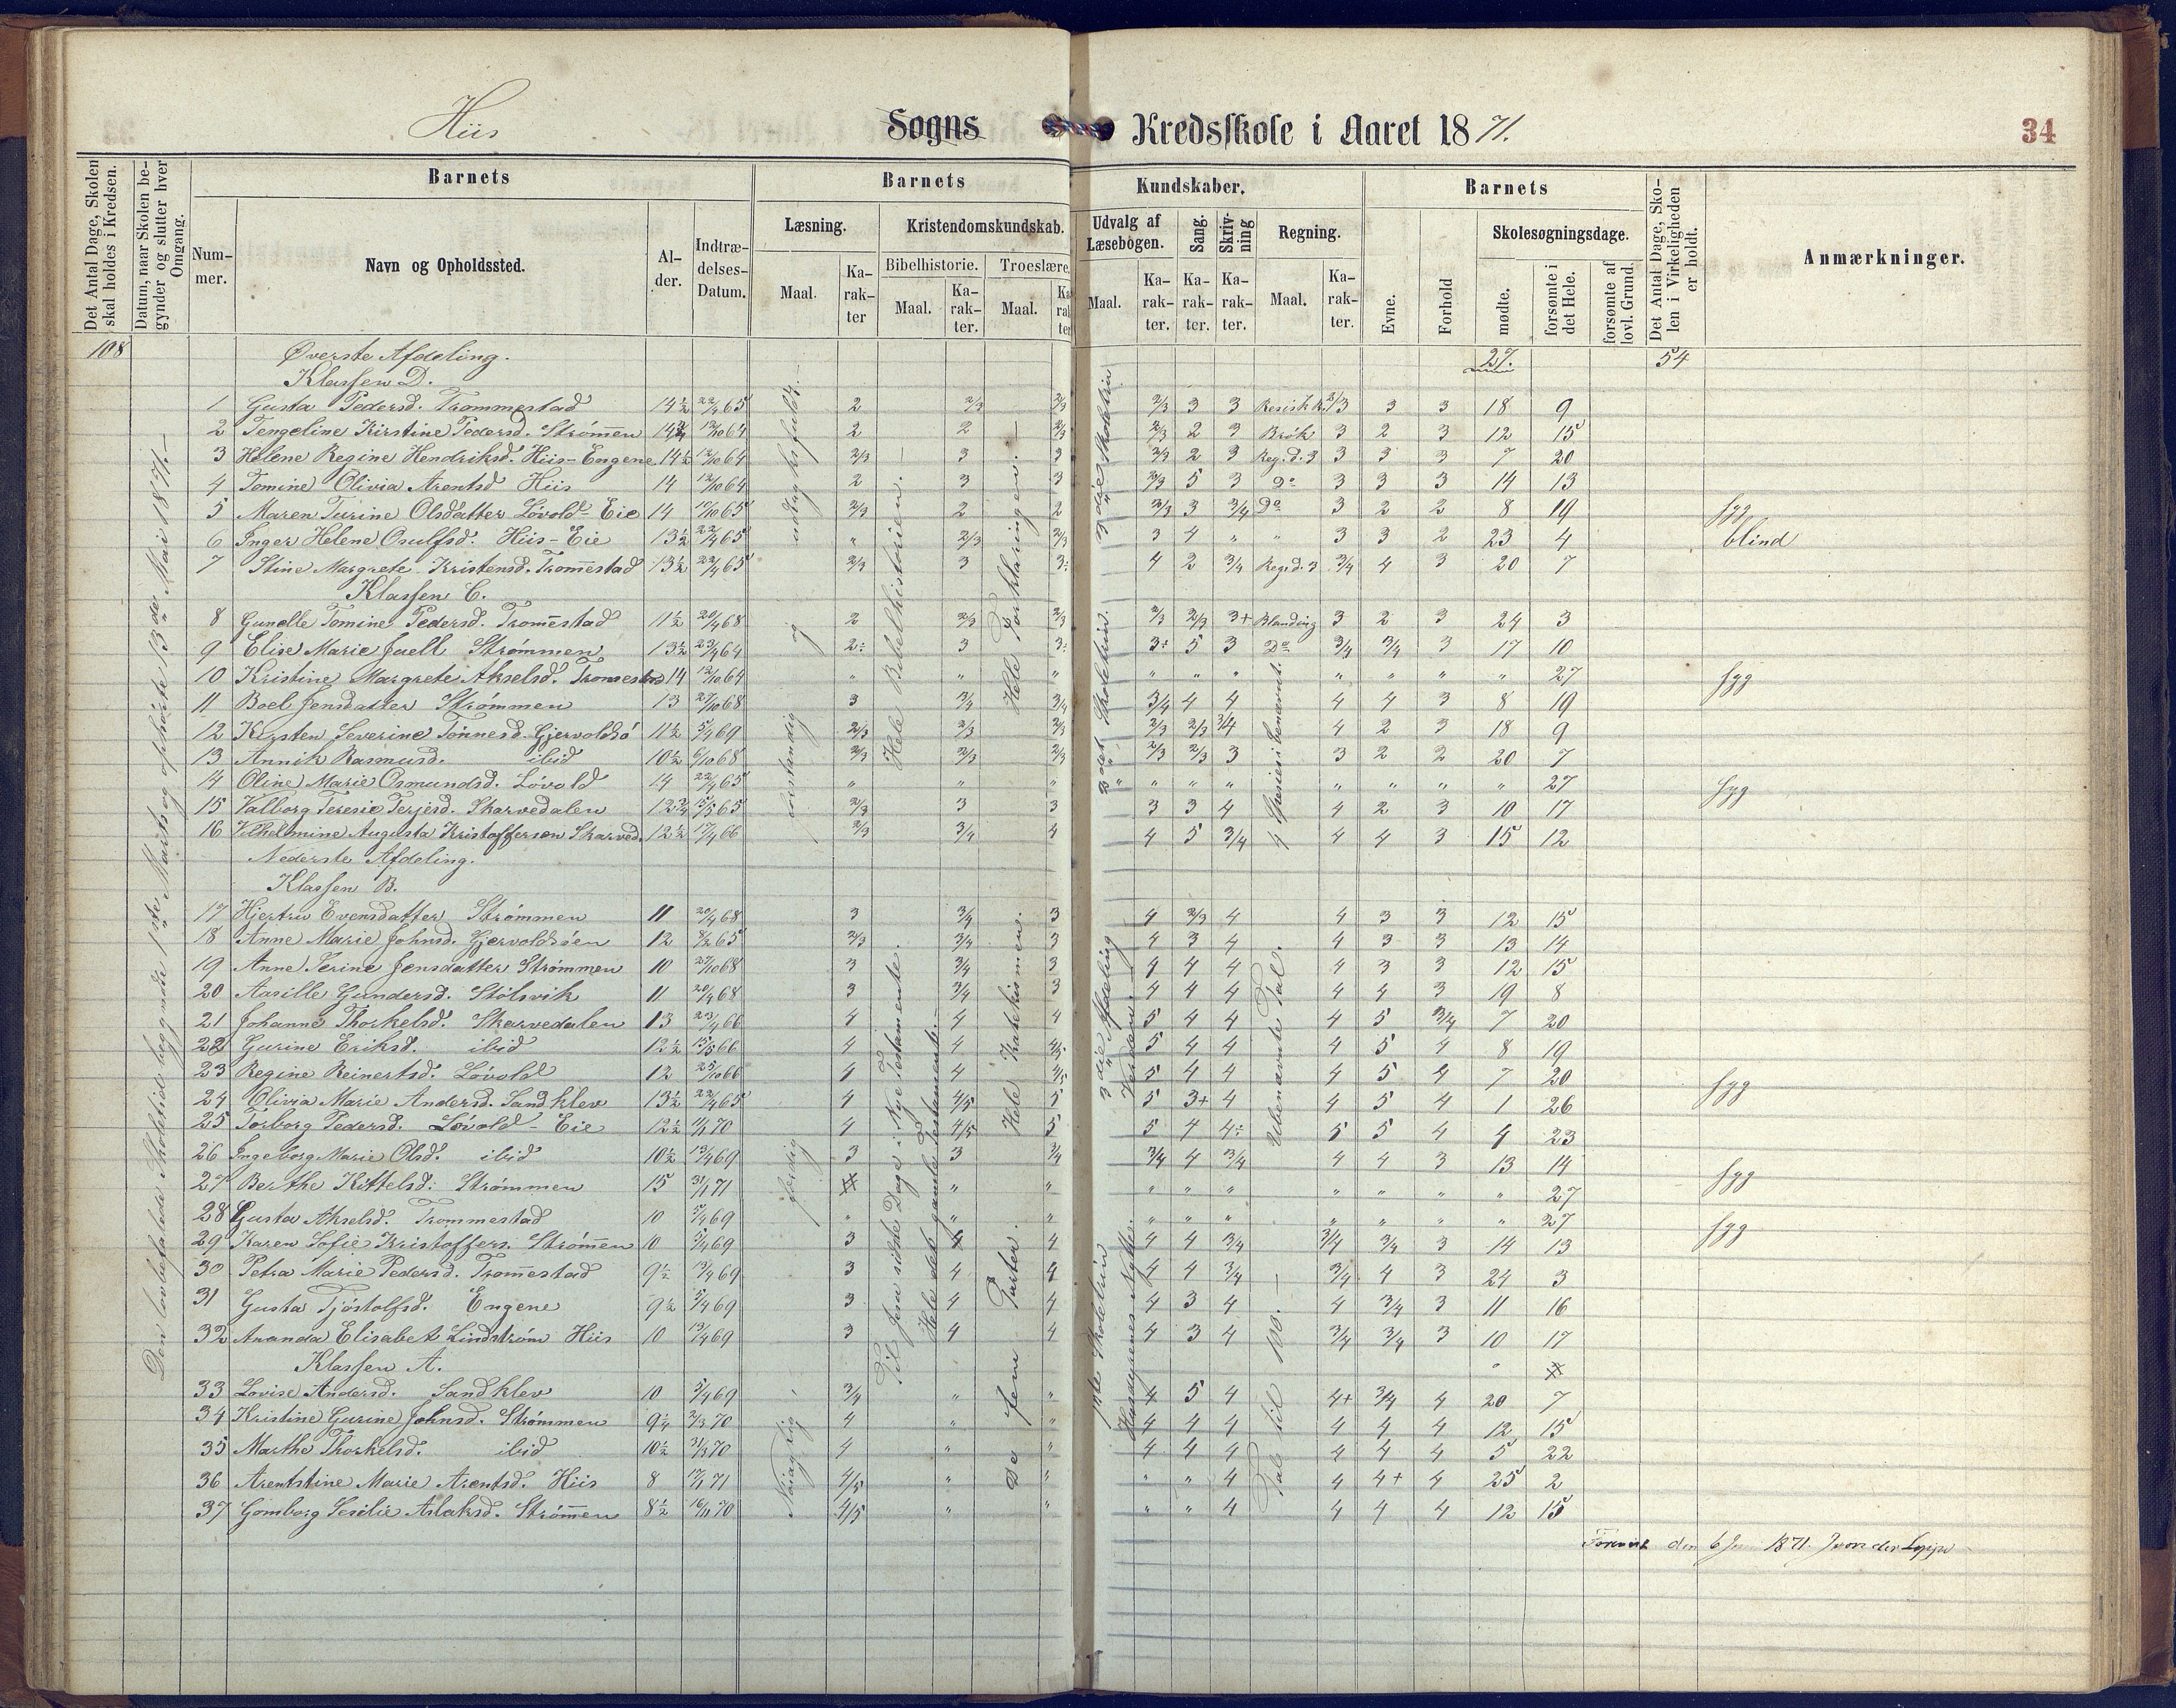 Hiis Sogns Kredsskole i Aaret 1871. 34
Det Antal Dage, Skolen skal holdes i Kredsen.
Datum, naar Skolen begynder og slutter hver Omgang.
Barnets
Nummer.
Navn og Opholdssted.
Alder.
Indtrædelses-Datum.
Barnets
Læsning.
Maal.
Karakter
Kristendomskundskab.
Bibelhistorie.
Maal.
Karakter.
Troeslære.
Maal.
Kundskaber.
Udvalg af Læsebogen.
Maal.
Karakter.
Sang.
Karakter.
Skrivning
Karakter.
Regning.
Maal.
Karakter.
Barnets
Evne.
Forhold
Skolesøgningsdage.
mødte.
forsømte i det Hele.
forsømte af lovl. Grund.
Det Antal Dage, Skolen i Virkeligheden er holdt.
Anmærkninger.
108 Øverste Afdeling. 27. 54
Klassen D.
1 Gusta Pedersd. Trommestad 14½ 22/4 65 2 2/3 2/3 2/3 3 3 3 3 18 9
2 Tengeline Kirstine Pedersd. Strømmen 14¾ 12/10 64 2 2 2/3 2/3 2 3 Brøk 3 2 3 12 15
3 Helene Regine Hendriksd. Hiis-Engene 14½ 12/10 64 2/3 3 3 2/3 2 3 Reg.d.3 3 3 3 7 20
4 Tomine Olivia Arentsd Hiis 14 12/10 64 2 3 3 2/3 5 3 Do 3 3 3 14 13
5 Maren Turine Olsdatter Løvold-Eie 14 10/10 65 2/3 2 2 2/3 3 3/4 Do 3 2 2 8 19 syg
6 Inger Helene Osulfsd. Hiis-Eie 13½ 22/4 65 " 2/3 2/3 3 4 " " 3 3 2 23 4 blind
7 Stine Margrete Kristensd. Trommestad 13½ 22/4 65 2/3 3 3÷ 4 2 3/4 Reg.d.3 3/4 4 3 20 7
Klassen C.
8 Gunelle Tomine Pedersd. Trommestad 11½ 20/4 68 2 2/3 2/3 2/3 2/3 3+ Blanding 3 2 3 24 3
9 Elise Marie Juell Strømmen 13½ 23/4 64 2÷ 3 3÷ 3÷ 5 3 Do 3/4 3/4 3 17 10
10 Kristine Margrete Akselsd. 14 12/10 64 " " " " " " " " " " 27 syg
11 Boel Jensdatter Strømmen 13 27/10 68 3 3/4 3/4 3/4 4 4 4 4 3 8 19
12 Kirsten Severine Tønnesd. Gjervoldsø 11½ 5/4 69 2/3 2/3 2/3 2/3 2/3 3/4 4 2 3 18 9
13 Annik Rasmusd. ibid 10½ 6/10 68 2/3 2/3 2/3 2/3 2/3 3 3 2 2 20 7
14 Oline Marie Osmundsd. Løvold 14 22/4 65 " " " " " " " " " " 27 syg
15 Valborg Teresie Terjesd. Skarvedalen 12¾ 15/5 65 2/3 3 3 3 3 4 4 2 3 10 17
16 Vilhelmine Augusta Kristofferson Skarved. 12½ 17/4 66 2/3 3/4 4 4 5 3/4 4 4 3 15 12
Nederste Afdeling.
Klassen B.
17 Hjertru Evensdatter Strømmen 11 20/4 68 3 3/4 3 4 2/3 4 4 3 3 12 15
18 Anne Marie Johnsd. Gjervoldsøen 12 8/2 65 2/3 3/4 3 4 3 4 4 3 3 13 14
19 Anne Serine Jensdatter Strømmen 10 27/10 68 3 3/4 3 4 4 4 4 3 3 12 15
20 Aasille Gundersd. Stølsvik 11 20/4 68 3 3/4 3 4 4 4 4 4 3 19 8
21 Johanne Thorkelsd. Skarvedalen 13 23/4 66 4 4 4 5 4 4 4 5 3/4 7 20
22 Gurine Eriksd. ibid 12½ 15/5 66 4 4 4/5 5 4 4 4 5 4 8 19
23 Regine Reinertsd. Løvold 12 25/10 66 4 4 4/5 5 4 4 4 5 4 7 20 syg
24 Olivia Marie Andersd. Sandklev 13½ 22/4 65 4 4/5 5 5 3+ 4 4 5 4 1 26
25 Torborg Pedersd. Løvold-Eie 12½ 11/1 70 4 4/5 5 5 4 4÷ 5 5 4 4 23
26 Ingeborg Marie Olsd. ibid 10½ 13/4 69 3 3 3/4 3/4 4 3/4 4 4 3 13 14
27 Berthe Kittelsd. Strømmen 15 31/1 71 " " " " " " " " " 27 syg
28 Gusta Akselsd. Trommestad 10 5/4 69 " " " " " " " " " " 27 syg
29 Karen Sofie Kristoffers. Strømmen 10 5/4 69 3 4 4 4 3/4 3/4 3/4 3 14 13
30 Petra Marie Pedersd. Trommestad 9½ 13/4 69 3 4 4 4 4 3/4 3/4 4 3 24 3
31 Gusta Tjøstolfsd. Engene 9½ 5/4 69 3 4 4 4 3 4 4 3/4 3 11 16
32 Ananda Elisabet Lindstrøm Hiis 10 13/4 69 3 4 4 4 3 4 3/4 3/4 3 10 17
Klassen A.
33 Lovise Andersd. Sandklev 10 5/4 69 3/4 " " 4 5 4 4+ 3/4 4 20 7
34 Kristine Gurine Johnsd. Strømmen 9¼ 2/3 70 4 " " 4 4 4 4 4 4 12 15
35 Marthe Thorkelsd. ibid 10½ 31/3 70 4 " " 4 4 4 4 4 4 5 22
36 Arentstine Marie Arentsd. Hiis 8 17/1 71 4/5 " " " " 4 4 4+ 4 25 2
37 Gomborg Sesilie Aslaksd. Strømmen 8½ 16/11 70 4/5 " " " " 4 4 4 4 12 15
Den lovbefalede Skoletid begyndte 1ste Marts og ophørte 13de Mai 1871.
Nøiagtig
færdig
forstandig
og
udtryksfuldt.
Til Jesu sidste Dage i Nye Testamente.
Hele det gamle Testamente.
Hele Bibelhistorien.
De fem Parter.
Hele Katekismen.
Hele Forklaringen.
1ste Skoletrin
Husdyrenes Nytte.
3die Afdeling
Verden.
2det Skoletrin.
3die Skoletrin
Tal til 100.
Ubenævnte Tal.
4 Spesier i benævnt.
den 6 1871. J von der Lippe